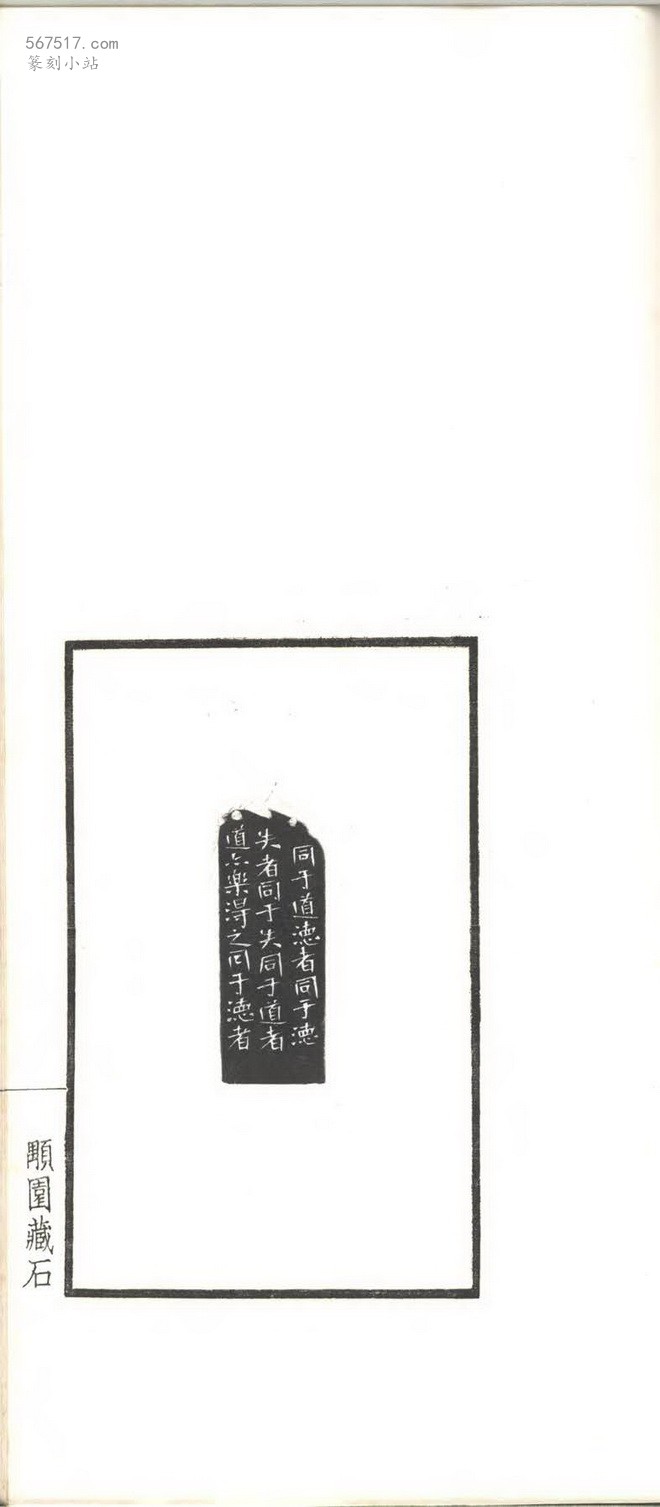 567517.com
篆刻小站
同于道德者同于德
失者同于失同于道者
道亦樂得之同于德者
園藏石